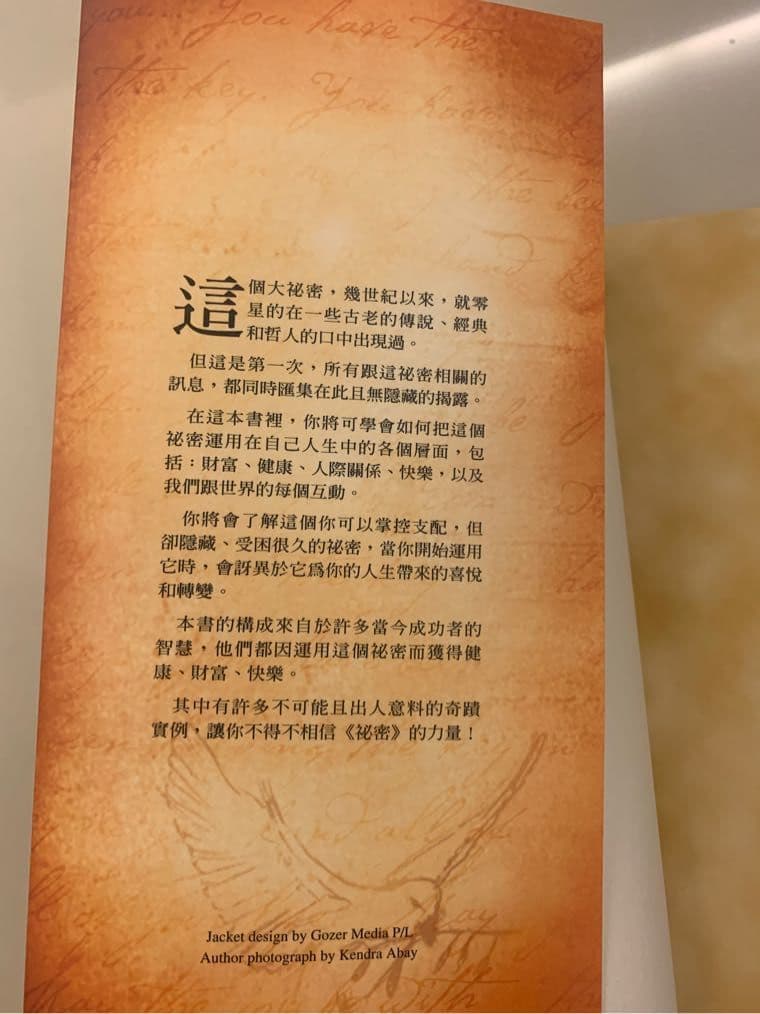 You have the
the key. You have
這個大祕密，幾世紀以來，就零
星的在一些古老的傳說、經典
和哲人的口中出現過。
但這是第一次，所有跟這祕密相關的
訊息，都同時匯集在此且無隱藏的揭露。
在這本書裡，你將可學會如何把這個
祕密運用在自己人生中的各個層面，包
括：財富、健康、人際關係、快樂，以及
我們跟世界的每個互動。
你將會了解這個你可以掌控支配，但
卻隱藏、受困很久的祕密，當你開始運用
它時，會訝異於它爲你的人生帶來的喜悅
和轉變。
本書的構成來自於許多當今成功者的
智慧，他們都因運用這個祕密而獲得健
康、財富、快樂。
其中有許多不可能且出人意料的奇蹟
實例，讓你不得不相信《祕密》的力量！
Jacket design by Gozer Media P/L
Author photograph by Kendra Abay